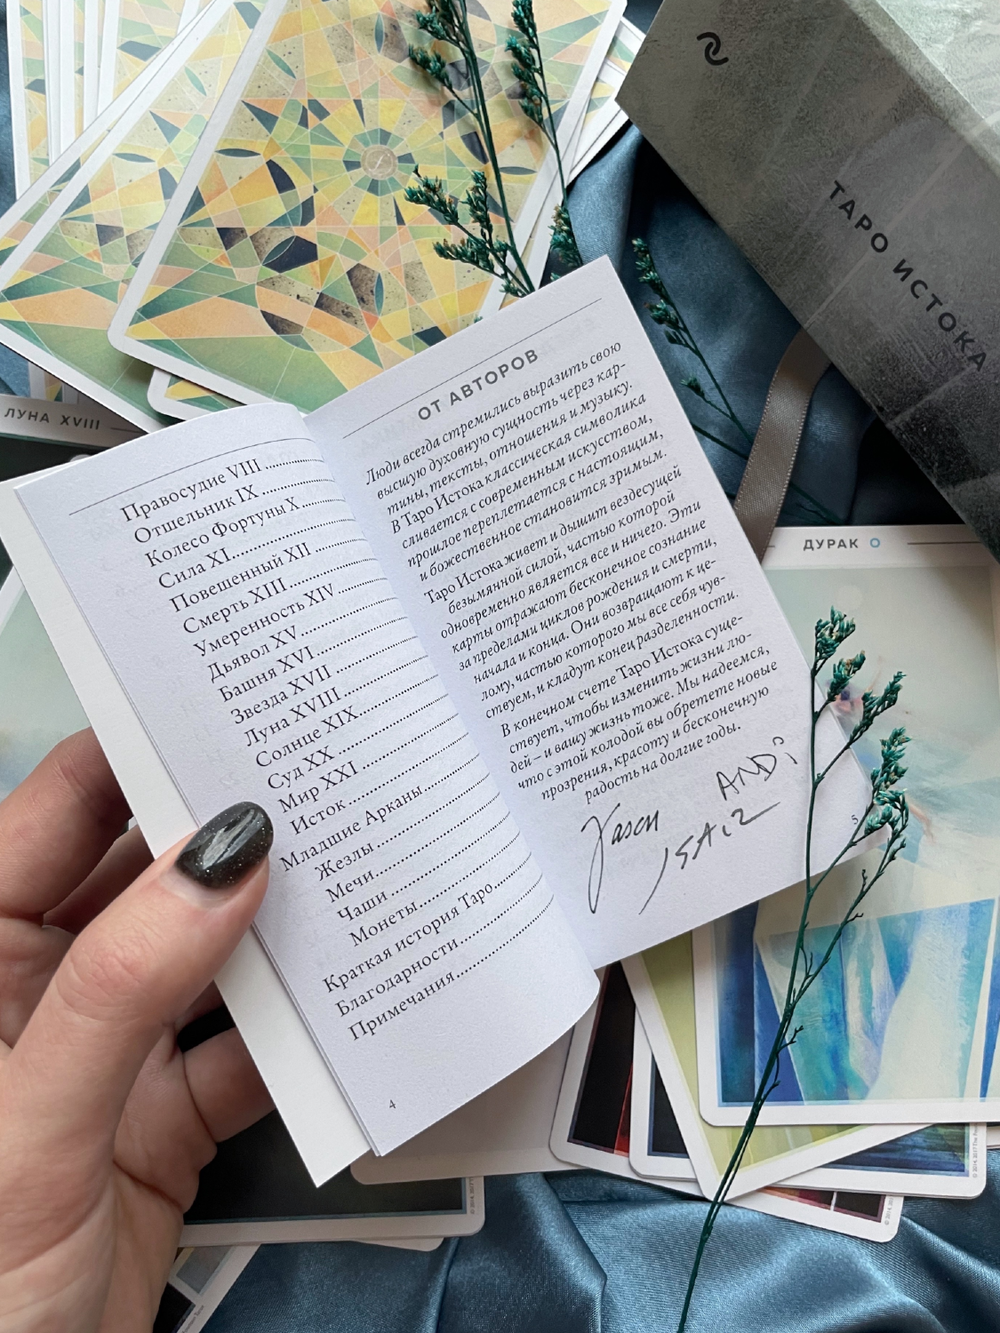 ТАРО ИСТОКА
ЛУНА XVIII
ДУРАК 0
Правосудие VIII
Отшельник IX
Колесо Фортуны X
Сила XI
Повешенный XII
Смерть XIII
Умеренность XIV
Дьявол XV
Башня XVI
Звезда XVII
Луна XVIII
Солнце XIX
Суд XX
Мир XXI
Исток
Младшие Арканы
Жезлы
Мечи
Чаши
Монеты
Краткая история Таро
Благодарности
Примечания
4
ОТ АВТОРОВ
Люди всегда стремились выразить свою
высшую духовную сущность через кар-
тины, тексты, отношения и музыку.
В Таро Истока классическая символика
сливается с современным искусством,
прошлое переплетается с настоящим,
и божественное становится зримым.
Таро Истока живет и дышит вездесущей
безымянной силой, частью которой
одновременно является все и ничего. Эти
карты отражают бесконечное сознание
за пределами циклов рождения и смерти,
начала и конца. Они возвращают к це-
лому, частью которого мы все себя чув-
ствуем, и кладут конец разделенности.
В конечном счете Таро Истока суще-
ствует, чтобы изменить жизни лю-
дей – и вашу жизнь тоже. Мы надеемся,
что с этой колодой вы обретете новые
прозрения, красоту и бесконечную
радость на долгие годы.
5